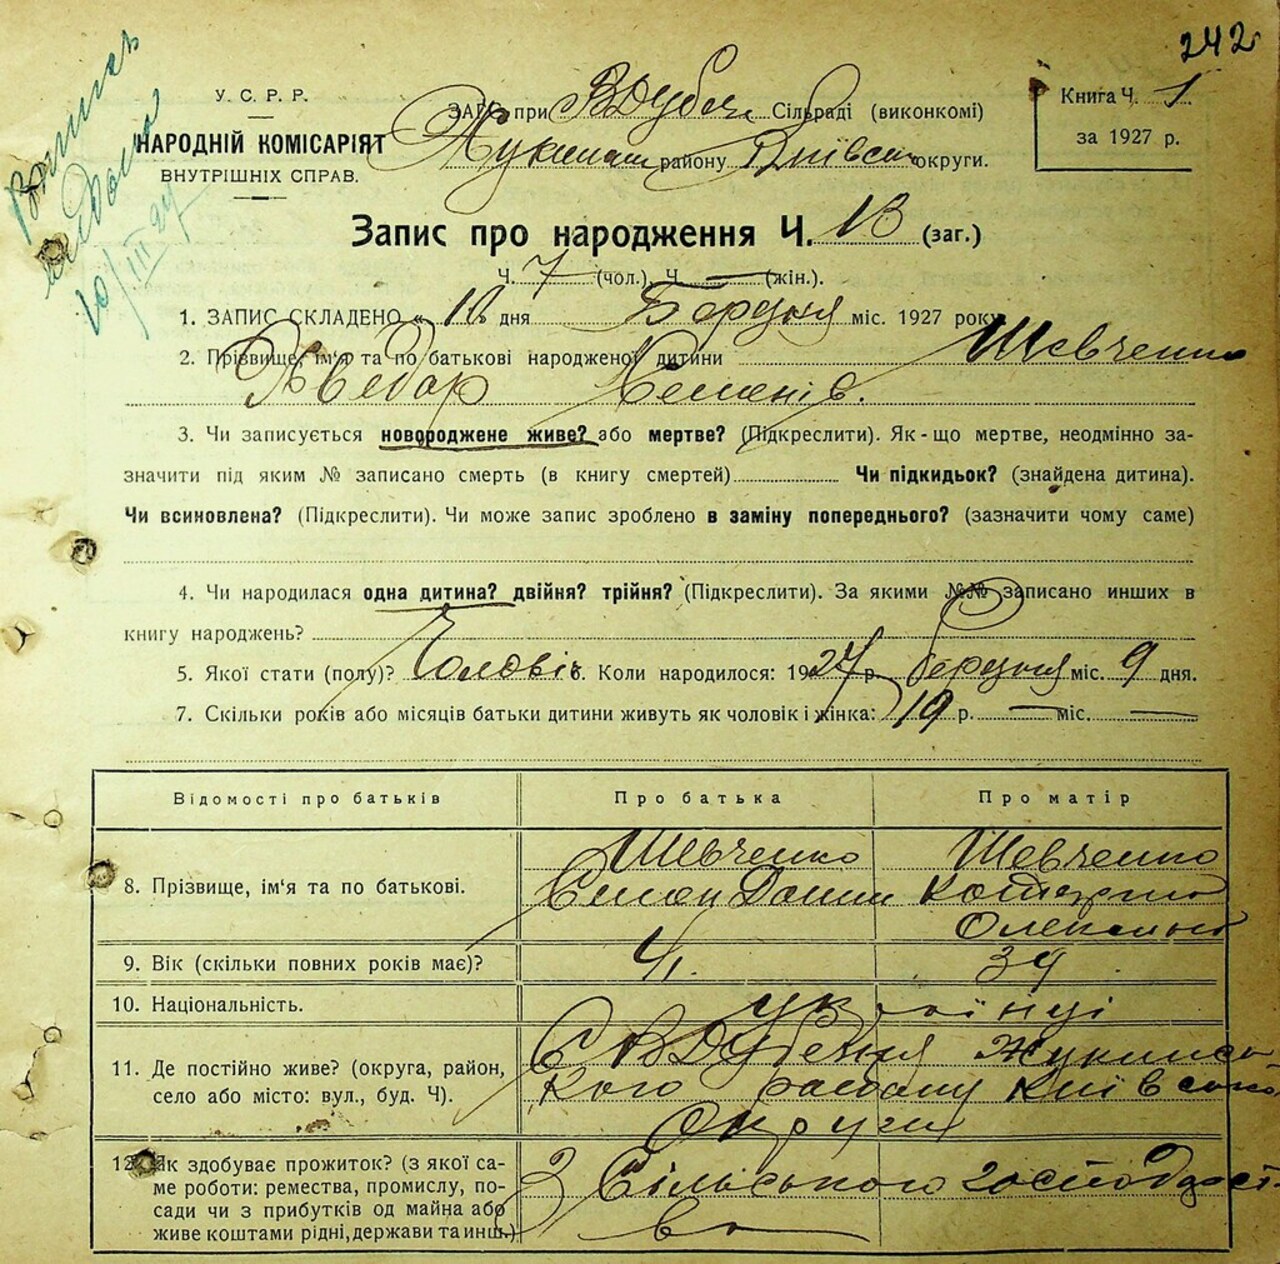 242
Випись
видана
10/III 27
У. С. Р. Р.
НАРОДНІЙ КОМІСАРІЯТ
ВНУТРІШНІХ СПРАВ.
ЗАГС при ВДубеч. Сільраді (виконкомі)
Жукинськ району Київськ округи.
Книга Ч. 1.
за 1927 р.
Запис про народження Ч. 13 (заг.)
Ч. 7 (чол.), Ч. — (жін.).
1. ЗАПИС СКЛАДЕНО «10» дня Березня міс. 1927 року
2. Прізвище, ім'я та по батькові народженої дитини Шевченко
Хведор Семенів.
3. Чи записується новороджене живе? або мертве? (Підкреслити). Як-що мертве, неодмінно за-
значити під яким № записано смерть (в книгу смертей) Чи підкидьок? (знайдена дитина).
Чи всиновлена? (Підкреслити). Чи може запис зроблено в заміну попереднього? (зазначити чому саме)
4. Чи народилася одна дитина? двійня? трійня? (Підкреслити). За якими №№ записано инших в
книгу народжень?
5. Якої стати (полу)? Чоловіч 6. Коли народилося: 1927 р. березня міс. 9 дня.
7. Скільки років або місяців батьки дитини живуть як чоловік і жінка: 19 р. — міс. —
Відомості про батьків Про батька Про матір
8. Прізвище, ім'я та по батькові. Шевченко Шевченко
Семен Данил Катерина
Олексієв
9. Вік (скільки повних років має)? 41. 39
10. Національність. українці
11. Де постійно живе? (округа, район, С ВДубечня Жукинсь
село або місто: вул., буд. Ч). кого району Київської
Округи
12. Як здобуває прожиток? (з якої са- З Сільського господарст
ме роботи: ремества, промислу, по- ва
сади чи з прибутків од майна або
живе коштами рідні, держави та инш.)